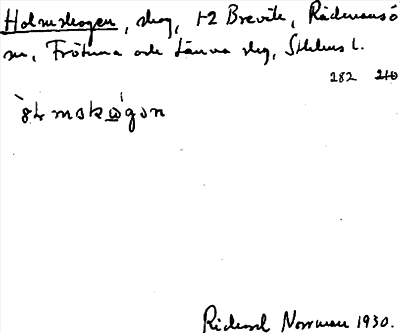 Holmskogen, skog, 1-2 Brevik, Rådmansö
sn, Frötuna och Länna skg, Sthlms l.
282 210
Rickard Norrman 1930.